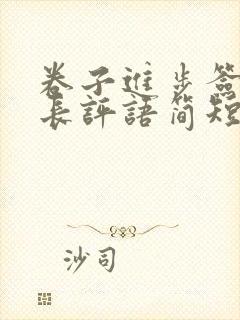 卷子進步簽
長評語簡短
沙司